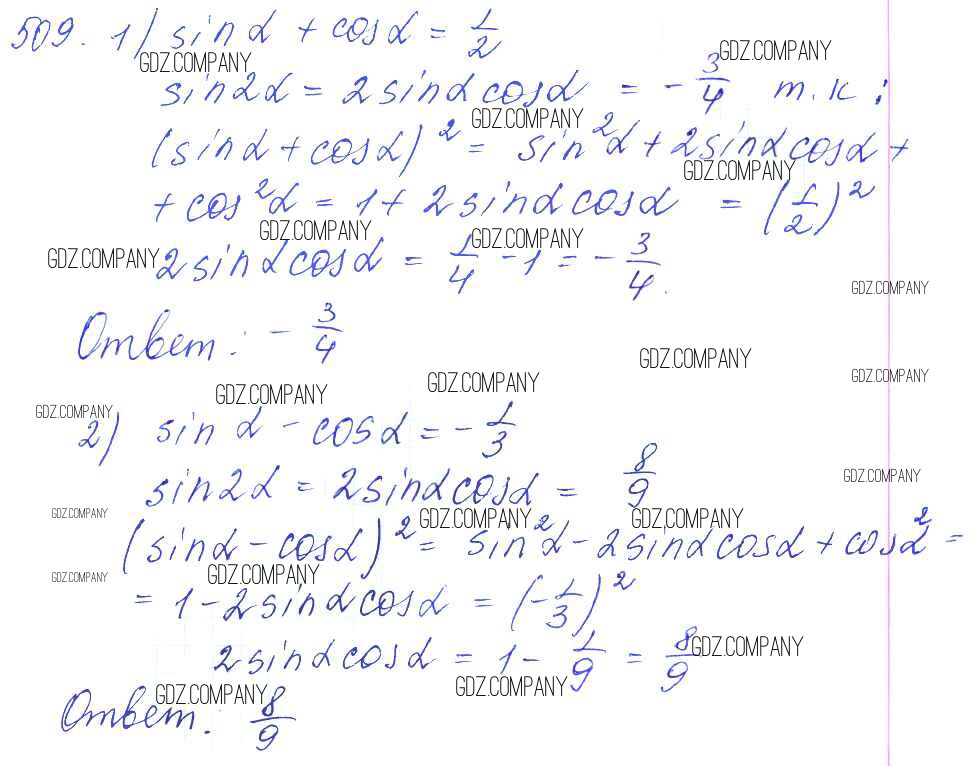 509. 1) sin α + cos α = 1/2
GDZ.COMPANY GDZ.COMPANY
sin2α = 2 sin α cos α = - 3/4 т.к:
GDZ.COMPANY
(sin α + cos α)² = sin²α + 2 sin α cos α +
GDZ.COMPANY
+ cos²α = 1 + 2 sin α cos α = (1/2)²
GDZ.COMPANY GDZ.COMPANY
GDZ.COMPANY
2 sin α cos α = 1/4 - 1 = - 3/4.
GDZ.COMPANY
Ответ: - 3/4
GDZ.COMPANY
GDZ.COMPANY GDZ.COMPANY
GDZ.COMPANY
GDZ.COMPANY
2) sin α - cos α = - 1/3
sin2α = 2 sin α cos α = 8/9
GDZ.COMPANY
GDZ.COMPANY GDZ.COMPANY GDZ.COMPANY
(sin α - cos α)² = sin²α - 2 sin α cos α + cos²α =
GDZ.COMPANY GDZ.COMPANY
= 1 - 2 sin α cos α = (- 1/3)²
2 sin α cos α = 1 - 1/9 = 8/9
GDZ.COMPANY
GDZ.COMPANY GDZ.COMPANY
Ответ: 8/9